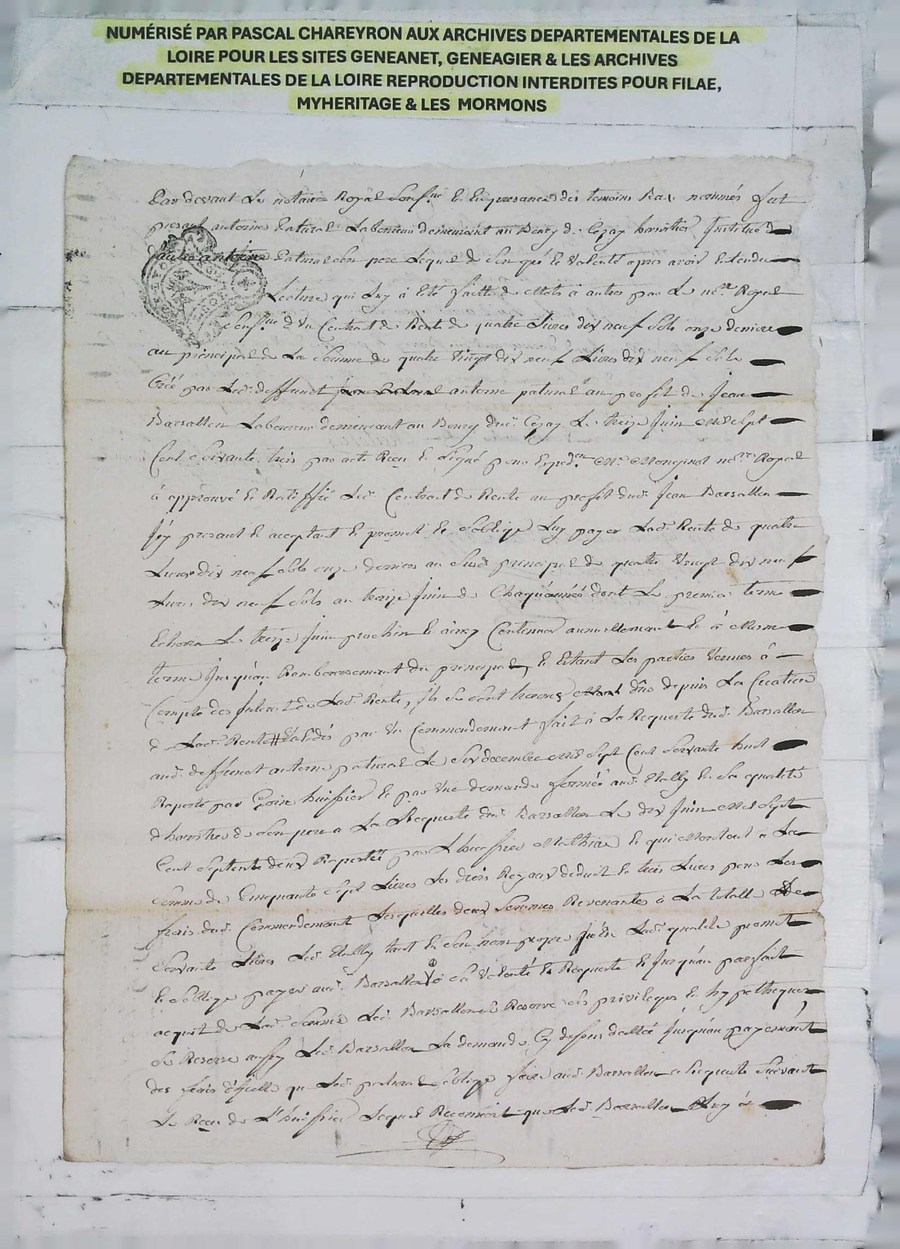 NUMÉRISÉ PAR PASCAL CHAREYRON AUX ARCHIVES DEPARTEMENTALES DE LA
LOIRE POUR LES SITES GENEANET, GENEAGIER & LES ARCHIVES
DEPARTEMENTALES DE LA LOIRE REPRODUCTION INTERDITES POUR FILAE,
MYHERITAGE & LES MORMONS
Par devant Le notaire Royal Sousgné Et En presence des temoins Bas nommés fut
present antoine Patural Laboureur demeurant au Bourg de Cezay heritier Institué de
antoine Patural son pere Lequel de Son gré Et Volonté apres avoir Entendu
Lecture qui Luy à Eté faitte de Mots à autres par Le nore Royal
Sousgné d'un Contrat de Rente de quatre Livres dix neuf Sols onze deniers
au principal de La Somme de quatre Vingt dix neuf Livres dix neuf Sols
Créé par Led. deffunct antoine patural au profit de Jean
Barsallon Laboureur demeurant au Bourg dud. Cezay Le treize Juin Mil Sept
Cent soixante trois par acte Reçu Et Signé pour Expedon Me nore Royal
à approuvé Et Ratiffié Led. Contract de Rente au profit dud. Jean Barsallon
Icy present Et acceptant Et promet Et S'oblige Luy payer Lad. Rente de quatre
Livres dix neuf Sols onze deniers au Susd. principal de quatre Vingt dix neuf
Livres dix neuf Sols au treize Juin de Chaque année dont Le premier terme
Echoira Le treize Juin prochin Et ainsy Continuer annuellement Et à Meme
terme Jusqu'au Remboursement du principal, Et Etant Les parties Venues à
Compte des Interets de Lad. Rente, Ils Se sont trouvés dûs depuis La Creation
de Lad. Rente # par Un Commandement fait à La Requete dud. Barsallon
aud. deffunct antoine patural Le Six decembre Mil Sept Cent Soixante huit
Raporté par huissier Et par Une demande formée aud. Et Sa qualité
d'heritier de Son pere a La Requete dud. Barsallon Le dix Juin Mil Sept
Cent Septente deux Raportée par L'huissier Mathieu Et qui Montent à La
Somme de Cinquante Sept Livres Les droits Royaux deduit Et trois Livres pour Les
frais dud. Commandement Lesquelles deux Sommes Revenantes à La totalle de
Soixante Livres Led. tant En Son nom propre qu'En Lad. qualité promet
Et S'oblige payer aud. Barsallon à Sa Volonté Et Requete Et Jusqu'au parfait
acquit de Lad. Somme Led. Barsallon Se Reserve Ses privileges Et hypotheques,
Se Reserve aussy Led. Barsallon La demande Cy dessus dattée Jusqu'au payement
des frais d'Icelle que Led. patural S'oblige faire aud. Barsallon Suivant
Le Reçu de L'huissier Lequel Reconnoit que Led. Barsallon Luy à